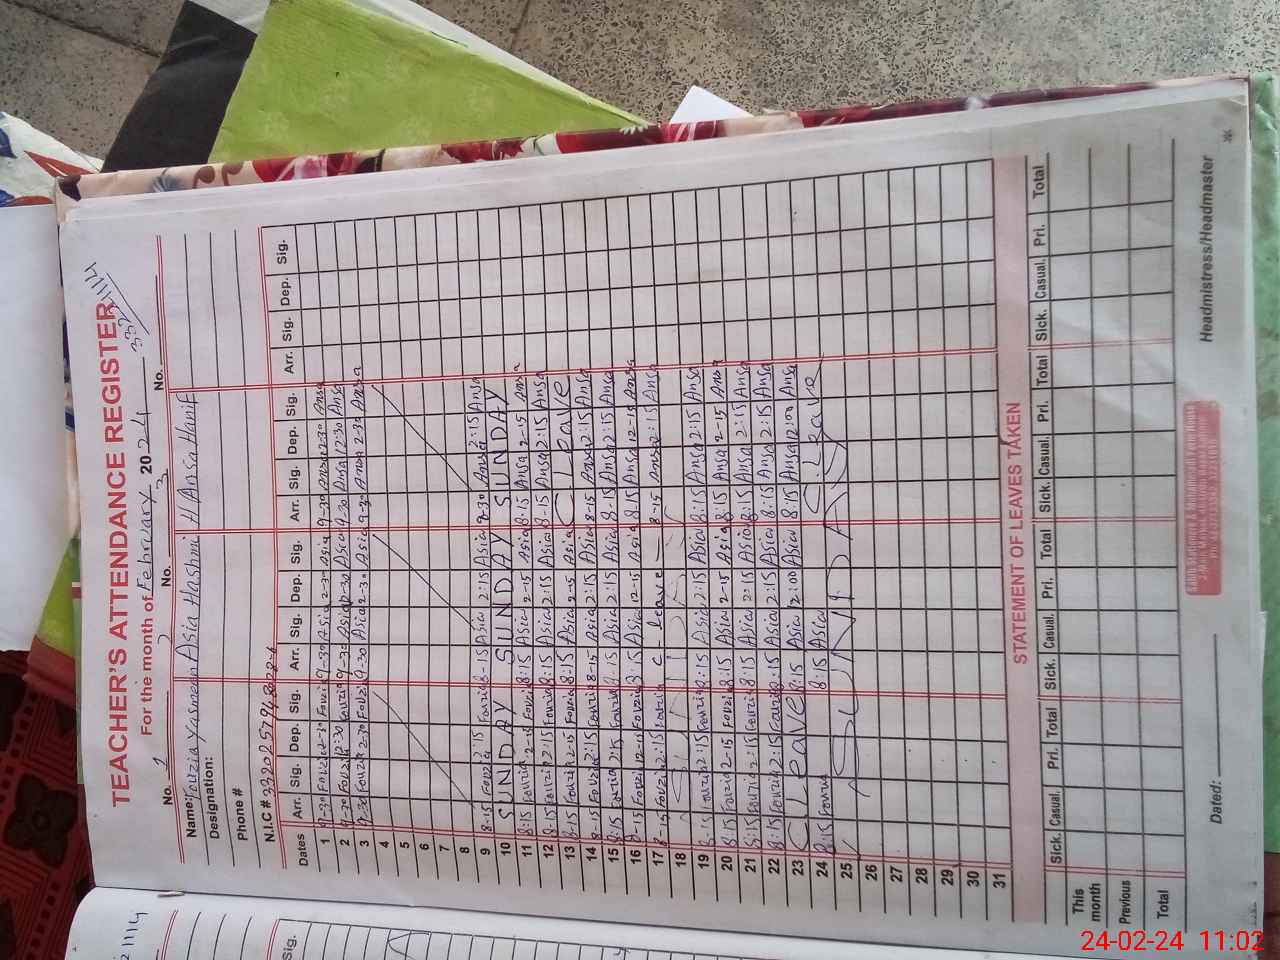 TEACHER'S ATTENDANCE REGISTER
For the month of February 2024
No. 1 No. 2 No. 3 No.
Name: Fouzia Yasmeen Asia Hashmi Ansa Hanif
Designation:
Phone #
N.I.C #
Dates Arr. Sig. Dep. Sig. Arr. Sig. Dep. Sig. Arr. Sig. Dep. Sig. Arr. Sig. Dep. Sig.
1 9-30 Fouzia 2-30 Fouzia 9-30 Asia 2-30 Asia 9-30 Ansa 2-30 Ansa
2 9-30 Fouzia 12:30 Fouzia 9-30 Asia 12-30 Asia 9-30 Ansa 12:30 Ansa
3 9-30 Fouzia 2-30 Fouzia 9-30 Asia 2-30 Asia 9-30 Ansa 2-30 Ansa
4
5
6
7
8
9 8-15 Fouzia 2:15 Fouzia 8-15 Asia 2:15 Asia 9-30 Ansa 2:15 Ansa
10 SUNDAY SUNDAY SUNDAY
11 8:15 Fouzia 2-15 Fouzia 8:15 Asia 2-15 Asia 8-15 Ansa 2-15 Ansa
12 8-15 Fouzia 2:15 Fouzia 8:15 Asia 2:15 Asia 8-15 Ansa 2:15 Ansa
13 8-15 Fouzia 2-15 Fouzia 8:15 Asia 2-15 Asia C Leave
14 8-15 Fouzia 2:15 Fouzia 8-15 Asia 2:15 Asia 8-15 Ansa 2:15 Ansa
15 8:15 Fouzia 2:15 Fouzia 8:15 Asia 2:15 Asia 8-15 Ansa 2:15 Ansa
16 8-15 Fouzia 12-15 Fouzia 8:15 Asia 12-15 Asia 8:15 Ansa 12-15 Ansa
17 8-15 Fouzia 2:15 Fouzia C- Leave 8-15 Ansa 2:15 Ansa
18 SUNDAY
19 8:15 Fouzia 2:15 Fouzia 8:15 Asia 2:15 Asia 8:15 Ansa 2:15 Ansa
20 8:15 Fouzia 2-15 Fouzia 8:15 Asia 2-15 Asia 8:15 Ansa 2-15 Ansa
21 8:15 Fouzia 2:15 Fouzia 8:15 Asia 2:15 Asia 8:15 Ansa 2:15 Ansa
22 8:15 Fouzia 2:15 Fouzia 8:15 Asia 2:15 Asia 8:15 Ansa 2:15 Ansa
23 C Leave 8:15 Asia 12:00 Asia 8:15 Ansa 12:00 Ansa
24 8:15 Fouzia 8:15 Asia C. Leave
25 SUNDAY
26
27
28
29
30
31
STATEMENT OF LEAVES TAKEN
Sick. Casual. Pri. Total Sick. Casual. Pri. Total Sick. Casual. Pri. Total Sick. Casual. Pri. Total
This month
Previous
Total
Dated: Headmistress/Headmaster
1114
Sig.
24-02-24 11:02